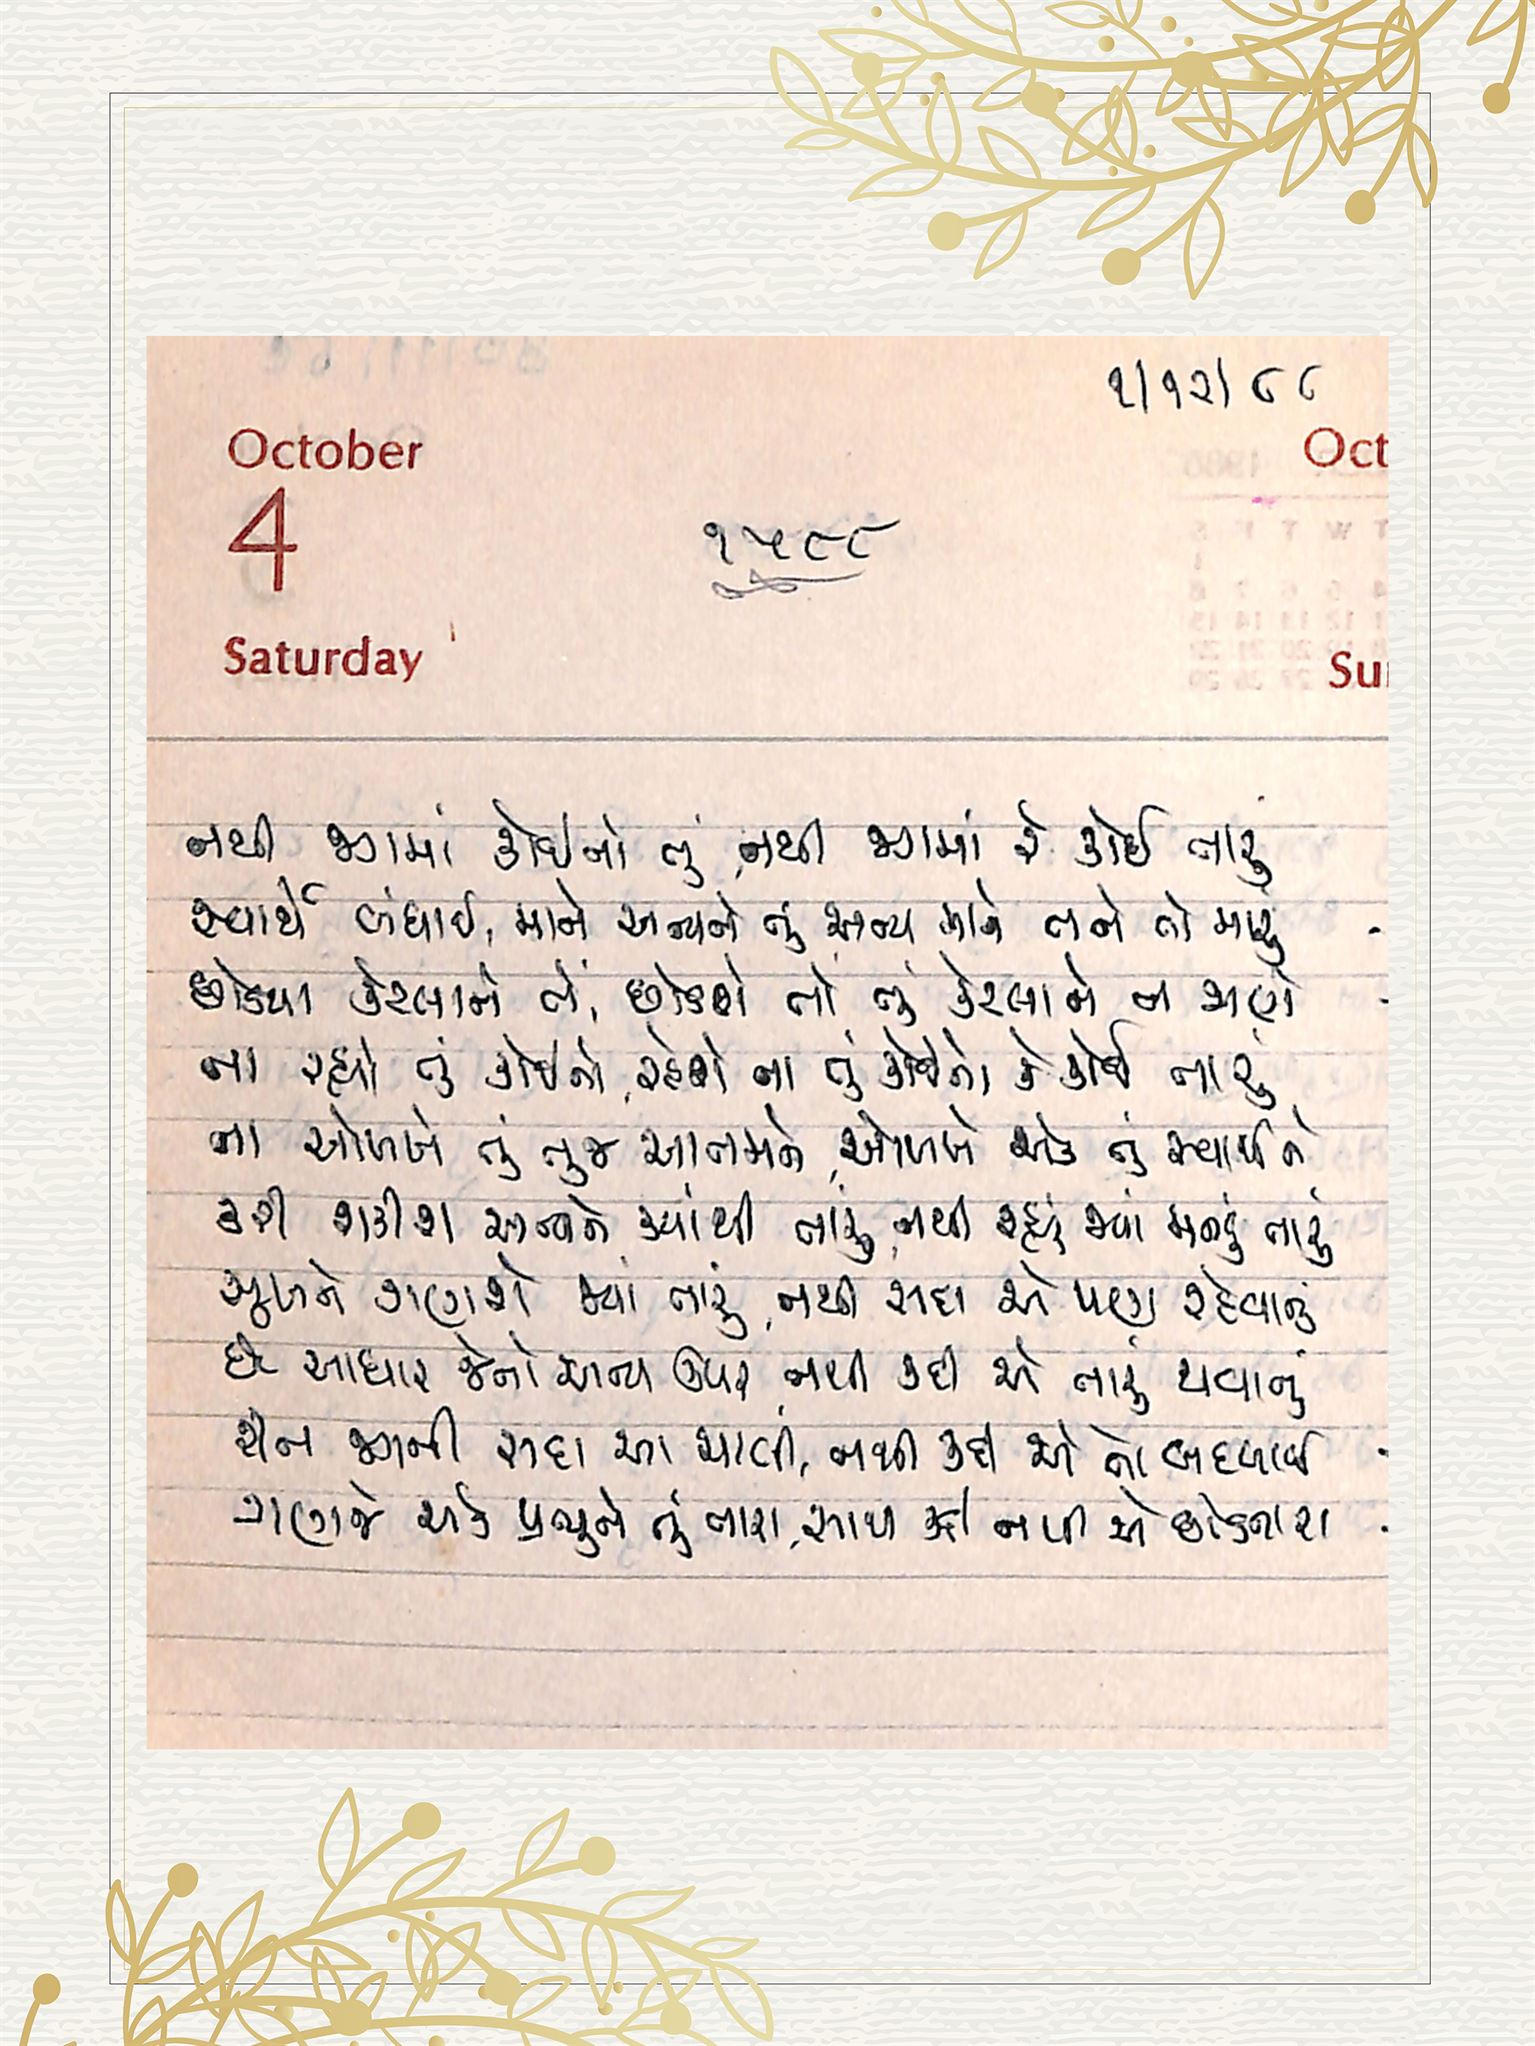 ૧/૧૨/૮૮
October
Oct
4
૧૫૯૮
Saturday
Su
નથી જગમાં કોઈનો તું, નથી જગમાં રે કોઈ તારું
સ્વાર્થે બંધાઈ, માને અન્યને તું, અન્ય માને તને તો મારું
છોડયા કેટલાને તેં, છોડશે તો તું કેટલાને ન જાણે
ના રહ્યો તું કોઈનો, રહેશે ના તું કોઈનો, કે કોઈ તારું
ના ઓળખે તું તુજ આતમને, ઓળખે એક તું સ્વાર્થને
કરી શકીશ અન્યને ક્યાંથી તારું, નથી રહ્યું જ્યાં મનડું તારું
સુખને ગણશે જ્યાં તારું, નથી સદા એ પણ રહેવાનું
છે આધાર જેનો અન્ય ઉપર, નથી કદી એ તારું થવાનું
રીત જગની સદા આ ચાલી, નથી કદી એ તો બદલાઈ
ગણજે એક પ્રભુને તું તારા, સાથ કદી નથી એ છોડનારા